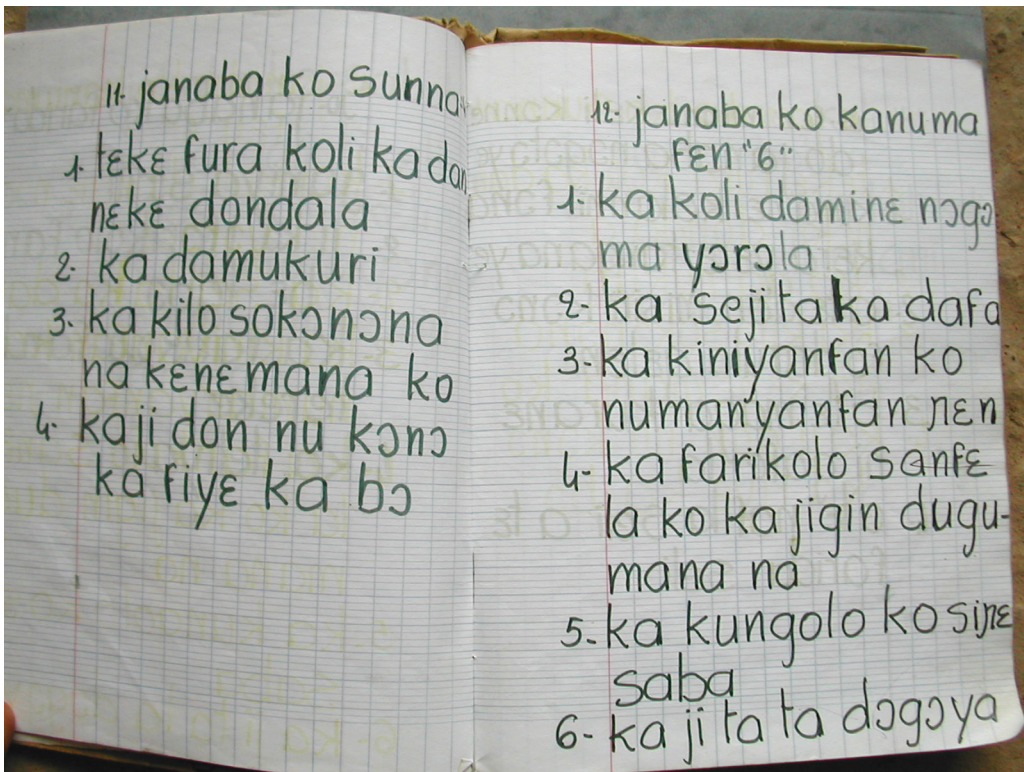 11. janaba ko sunna
1. tɛkɛ fura koli ka dan
nɛkɛ dondala
2. ka damukuri
3. ka kilo sokɔnɔna
na kɛnɛ mana ko
4. kaji don nu kɔnɔ
ka fiyɛ ka bɔ
12. janaba ko kanuma
fɛn "6"
1. ka koli daminɛ nɔgɔ
ma yɔrɔla
2- ka seji ta ka dafa
3- ka kiniyanfan ko
numanyanfan ɲɛn
4- ka farikolo sanfɛ
la ko ka jigin dugu-
mana na
5- ka kungolo ko siɲɛ
saba
6- ka ji ta ta dɔgɔya